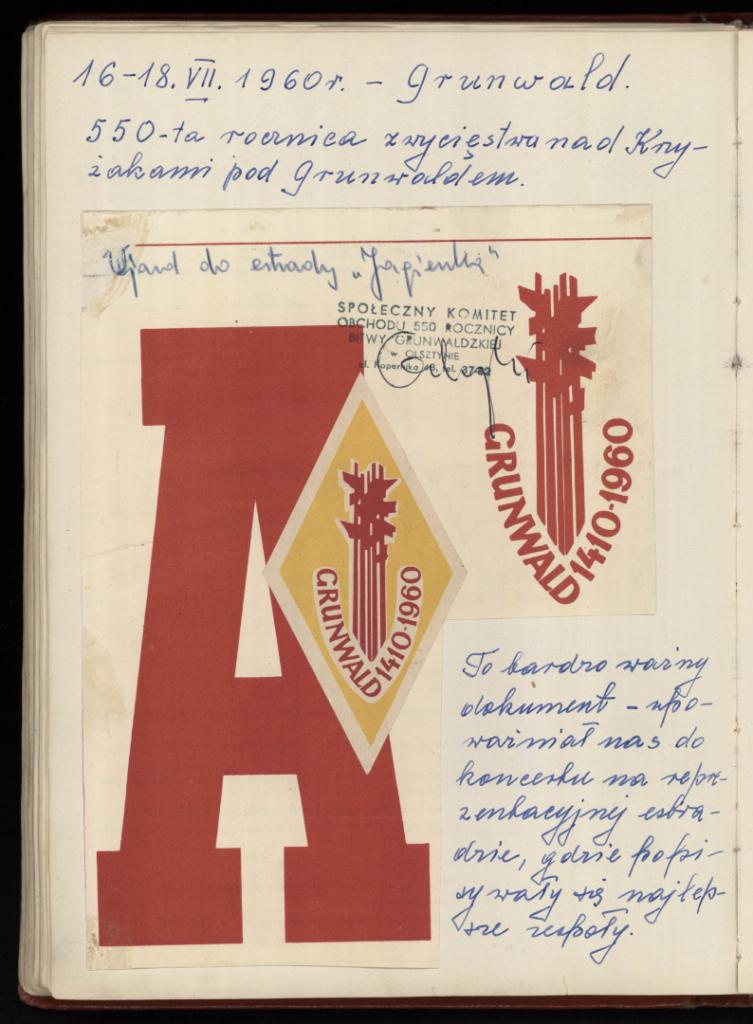 16-18.VII.1960r. - Grunwald.
550-ta rocznica zwycięstwa nad Krzy-
żakami pod Grunwaldem.
Wjazd do estrady „Jagienka"
SPOŁECZNY KOMITET
OBCHODU 550 ROCZNICY
BITWY GRUNWALDZKIEJ
w OLSZTYNIE
ul. Kopernika 48, tel. 37-82
GRUNWALD 1410-1960
A
GRUNWALD 1410-1960
To bardzo ważny
dokument - upo-
ważniał nas do
koncertu na repre-
zentacyjnej estra-
dzie, gdzie popi-
sywały się najlep-
sze zespoły.